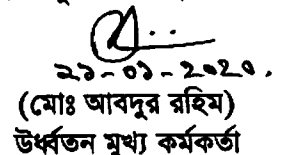 ২১-০১-২০২০.
(মোঃ আবদুর রহিম)
উর্ধ্বতন মুখ্য কর্মকর্তা